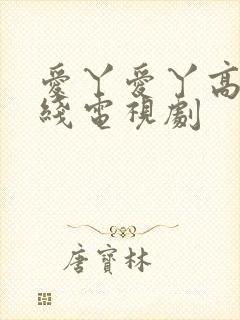 愛丫愛丫高
綫電視劇
唐寶林